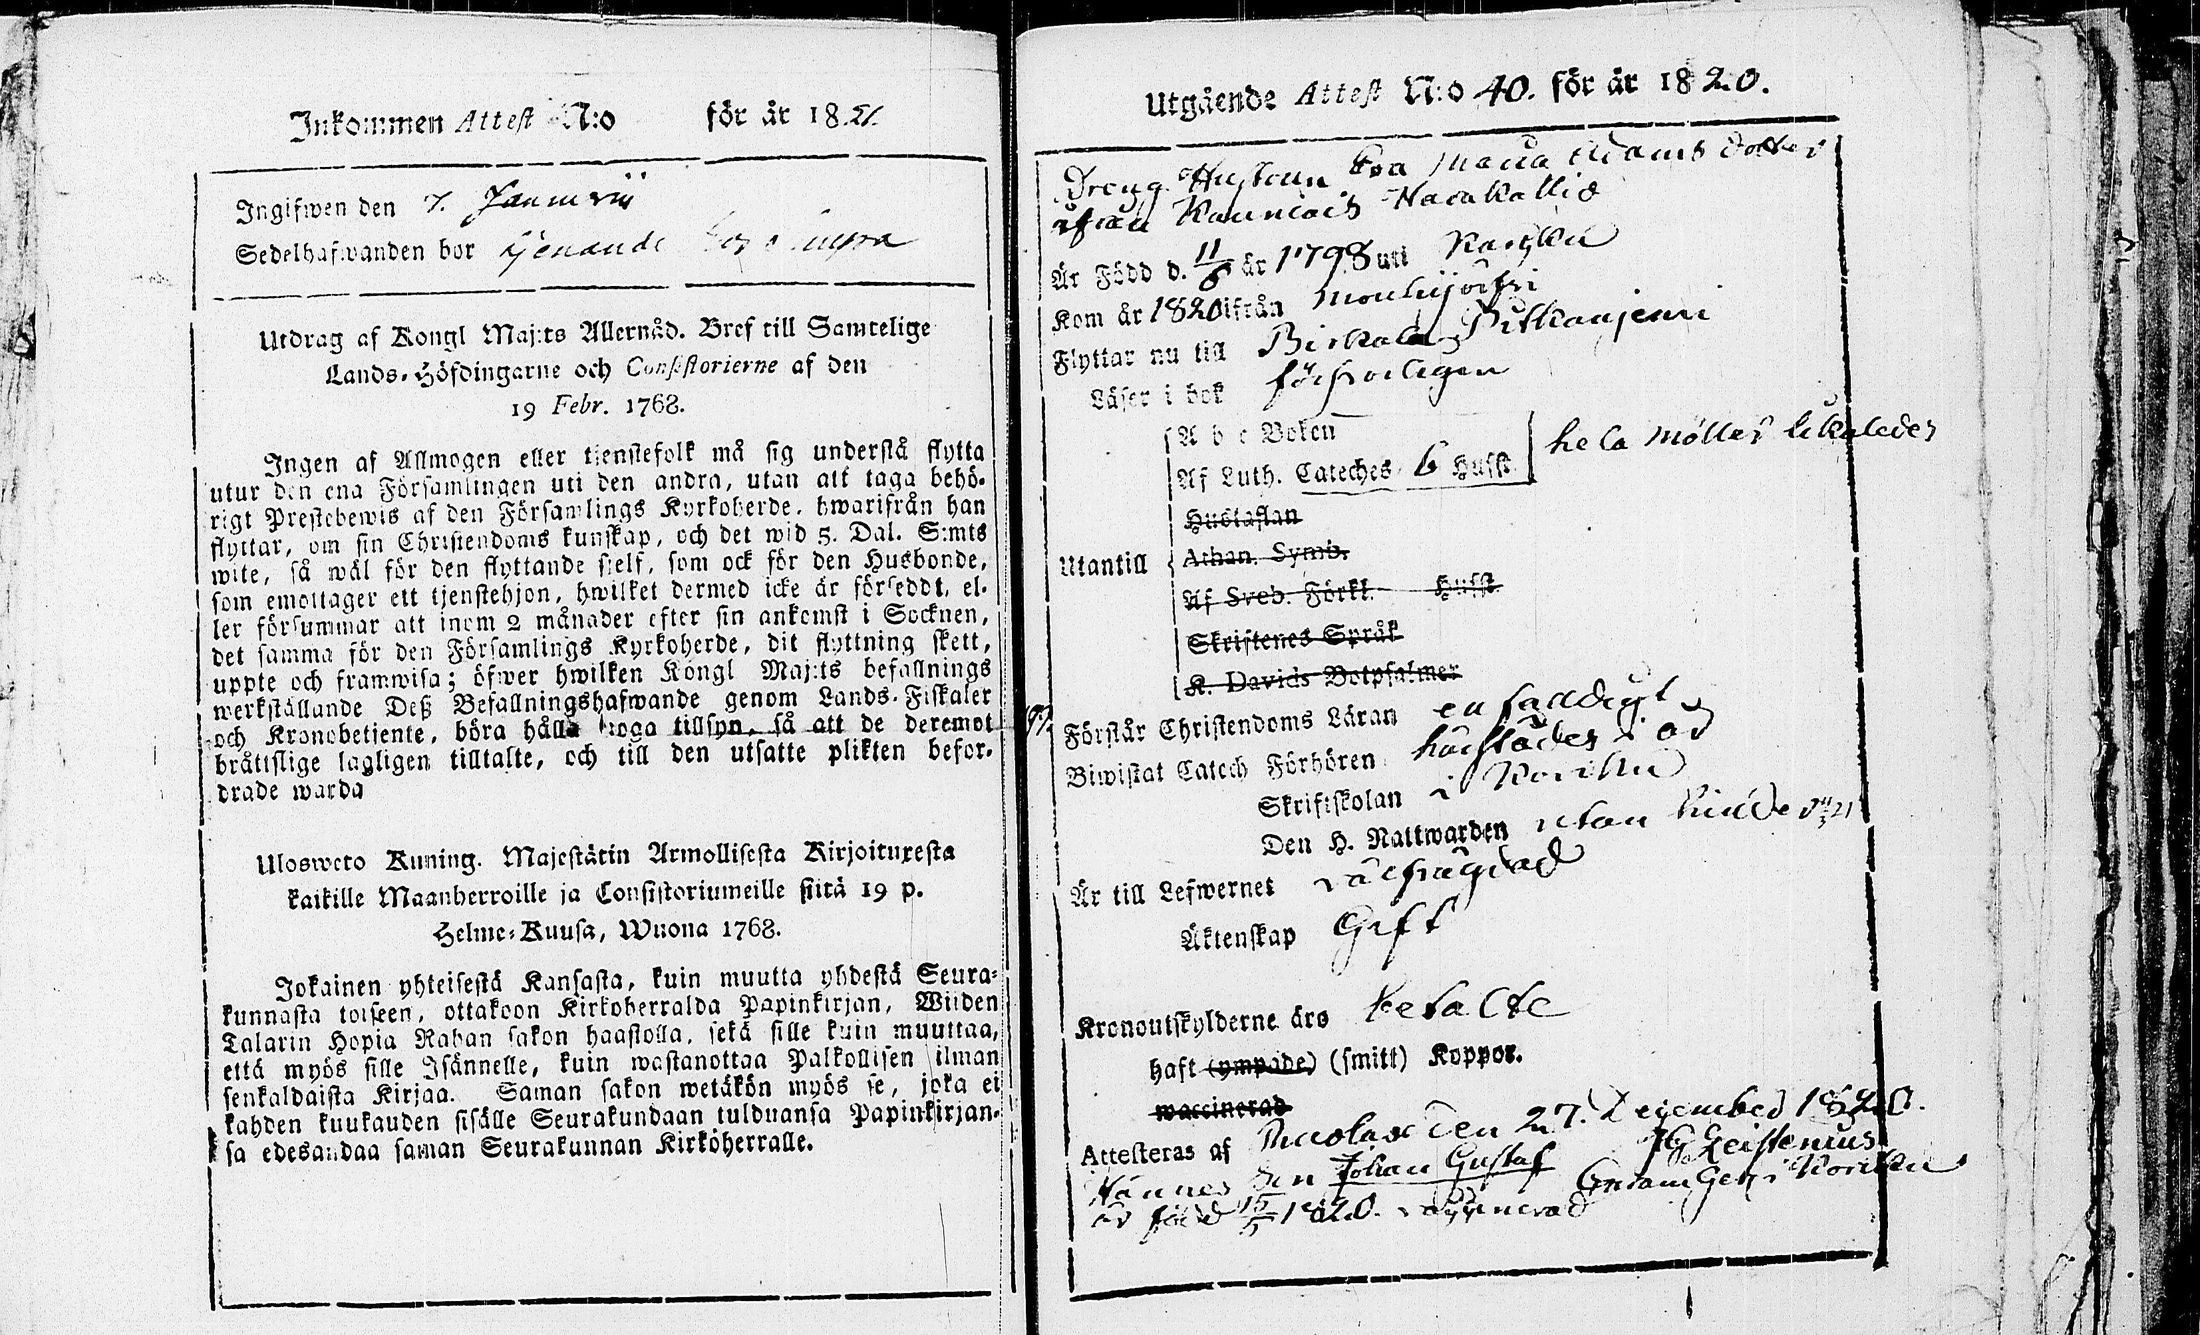 Inkommen Attest N:o för år 1821.
Ingifwen den 7. Januarii
Sedelhafwanden bor tjenande
Utdrag af Kongl Maj:ts Allernåd. Bref till Samtelige
Lands-Höfdingarne och Consistorierne af den
19 Febr. 1768.
Ingen af Allmogen eller tjenstefolk må sig understå flytta
utur den ena Församlingen uti den andra, utan att taga behö-
rigt Prestebewis af den Församlings Kyrkoherde, hwarifrån han
flyttar, om sin Christendoms kunskap, och det wid 5. Dal. S:mts
wite, så wäl för den flyttande sjelf, som ock för den Husbonde,
som emottager ett tjenstehjon, hwilket dermed icke är försedd, el-
ler försummar att inom 2 månader efter sin ankomst i Socknen,
det samma för den Församlings Kyrkoherde, dit flyttning skett,
uppte och framwisa; öfwer hwilken Kongl Maj:ts befallnings
werkställande Deß Befallningshafwande genom Lands-Fiskaler
och Kronobetjente, böra hålla noga tillsyn, så att de deremot
bråttslige lagligen tilltalte, och till den utsatte plikten befor-
drade warda
Ulosweto Kuning. Majestätin Armollisesta Kirjoituxesta
kaikille Maanherroille ja Consistoriumeille siitä 19 p.
Helme-Kuusa, Wuona 1768.
Jokainen yhteisestä Kansasta, kuin muutta yhdestä Seura-
kunnasta toiseen, ottakoon Kirkoherralda Papinkirjan, Wiiden
Talarin Hopia Rahan sakon haastolla, sekä sille kuin muuttaa,
että myös sille Isännelle, kuin wastanottaa Palkollisen ilman
senkaldaista Kirjaa. Saman sakon wetäkön myös se, joka ei
kahden kuukauden sisälle Seurakundaan tulduansa Papinkirjan-
sa edesandaa saman Seurakunnan Kirköherralle.
Utgående Attest N:o 40. för år 1820.
Dreng Hustrun Eva Maria Adams dotter
ifrån Kauniais Harakallio
Är Född d. 11/6 år 1798 uti Karkku
Kom år 1820 ifrån Mouhijärfvi
Flyttar nu till Birkala Pitkanjemi
Läser i bok försvarligen
A b c Boken
Af Luth. Cateches 6 Hufst. hela Möller likaledes
Hustaflan
Athan. Symb.
Utantill
Af Sveb. Förkl. Hufst.
Skriftenes Språk
K. Davids Botpsalmer
Förstår Christendoms Läran enfalldigt
Biwistat Catech Förhören härstädes i år
Skriftskolan i Karkku
Den H. Nattwarden utan hinder
Är till Lefwernet välfrägdad
Äktenskap Gift
Kronoutskylderne äro betalte
haft (ympade) (smitt) Koppor.
waccinerad
Attesteras af den 27. December 1820.
Hännes Son Johan Gustaf
är född 15/5 1820. vaccinerad